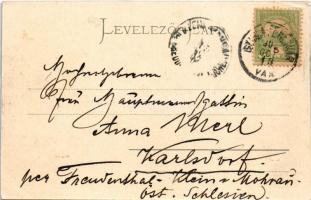 LEVELEZŐ-LAP
Hochgeborene
Frau Hauptmannsgattin
Anna Merl
Karlsdorf.
per Freudenthal - Klein-Mohrau
Öst. Schlesien.